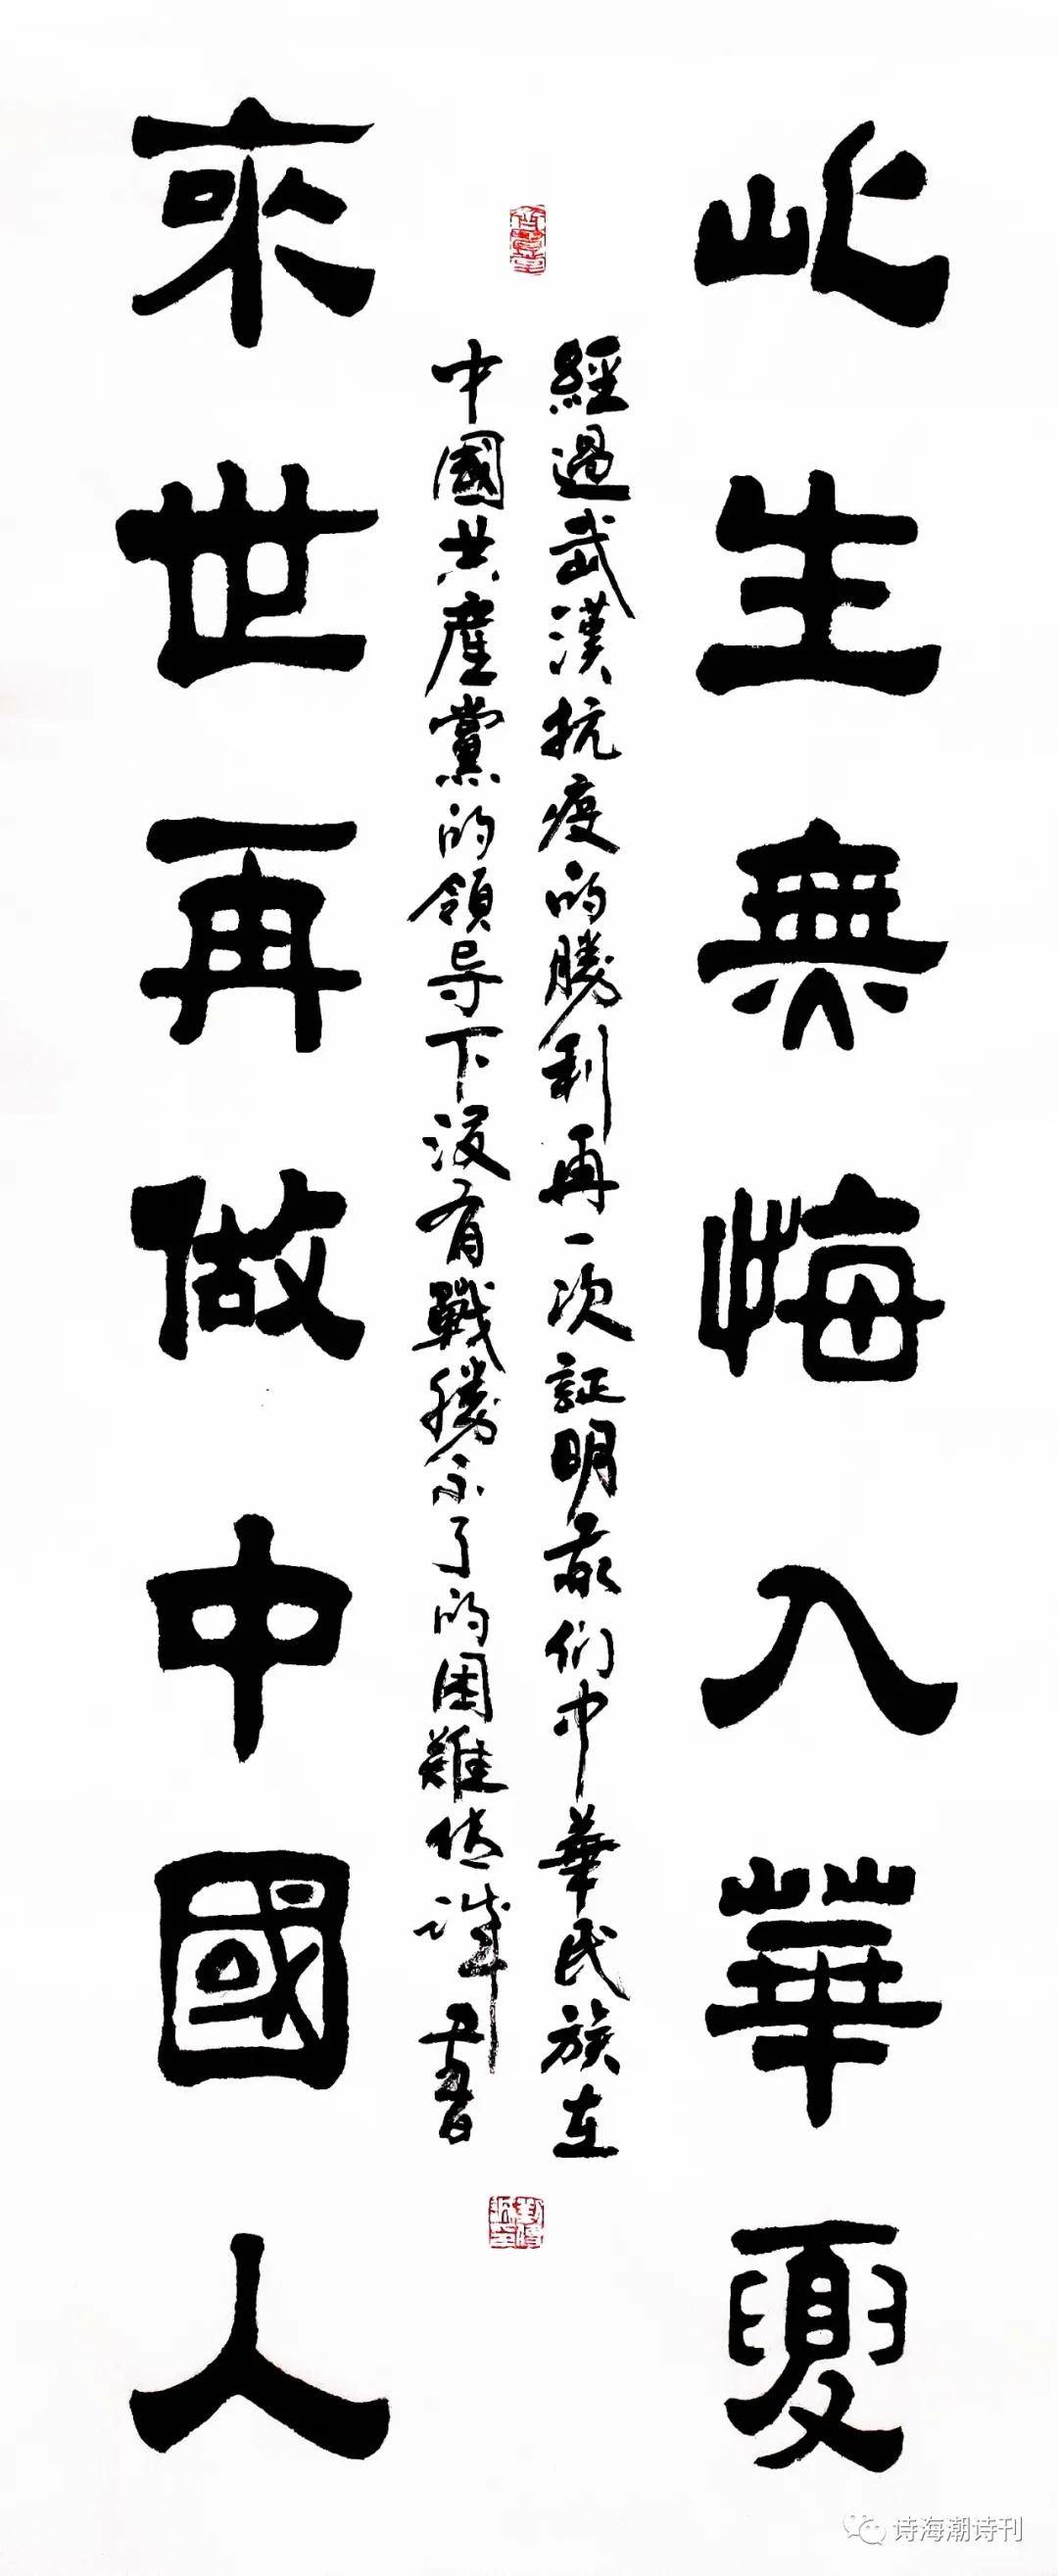 此生無悔入華夏
經過武漢抗疫的勝利再一次証明我们中華民族在
中國共產黨的領导下没有戰勝不了的困難
書
來世再做中國人
诗海潮诗刊